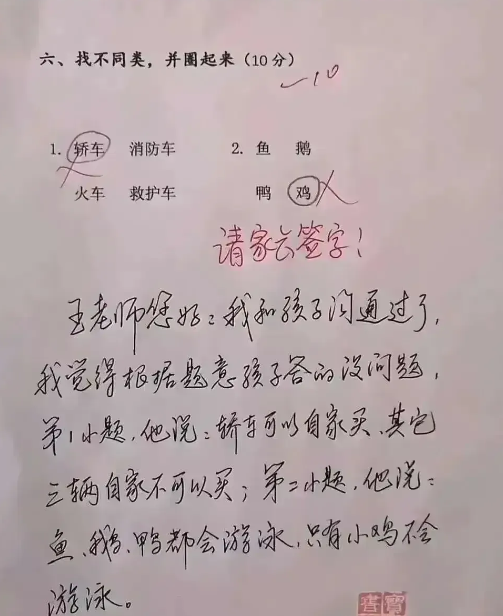 六、找不同类，并圈起来（10分）
-10
1. 轿车 消防车 2. 鱼 鹅
火车 救护车 鸭 鸡
请家长签字！
王老师您好：我和孩子沟通过了，
我觉得根据题意孩子答的没问题，
第1小题，他说：轿车可以自家买，其它
三辆自家不可以买；第二小题，他说：
鱼、鹅、鸭都会游泳，只有小鸡不会
游泳。